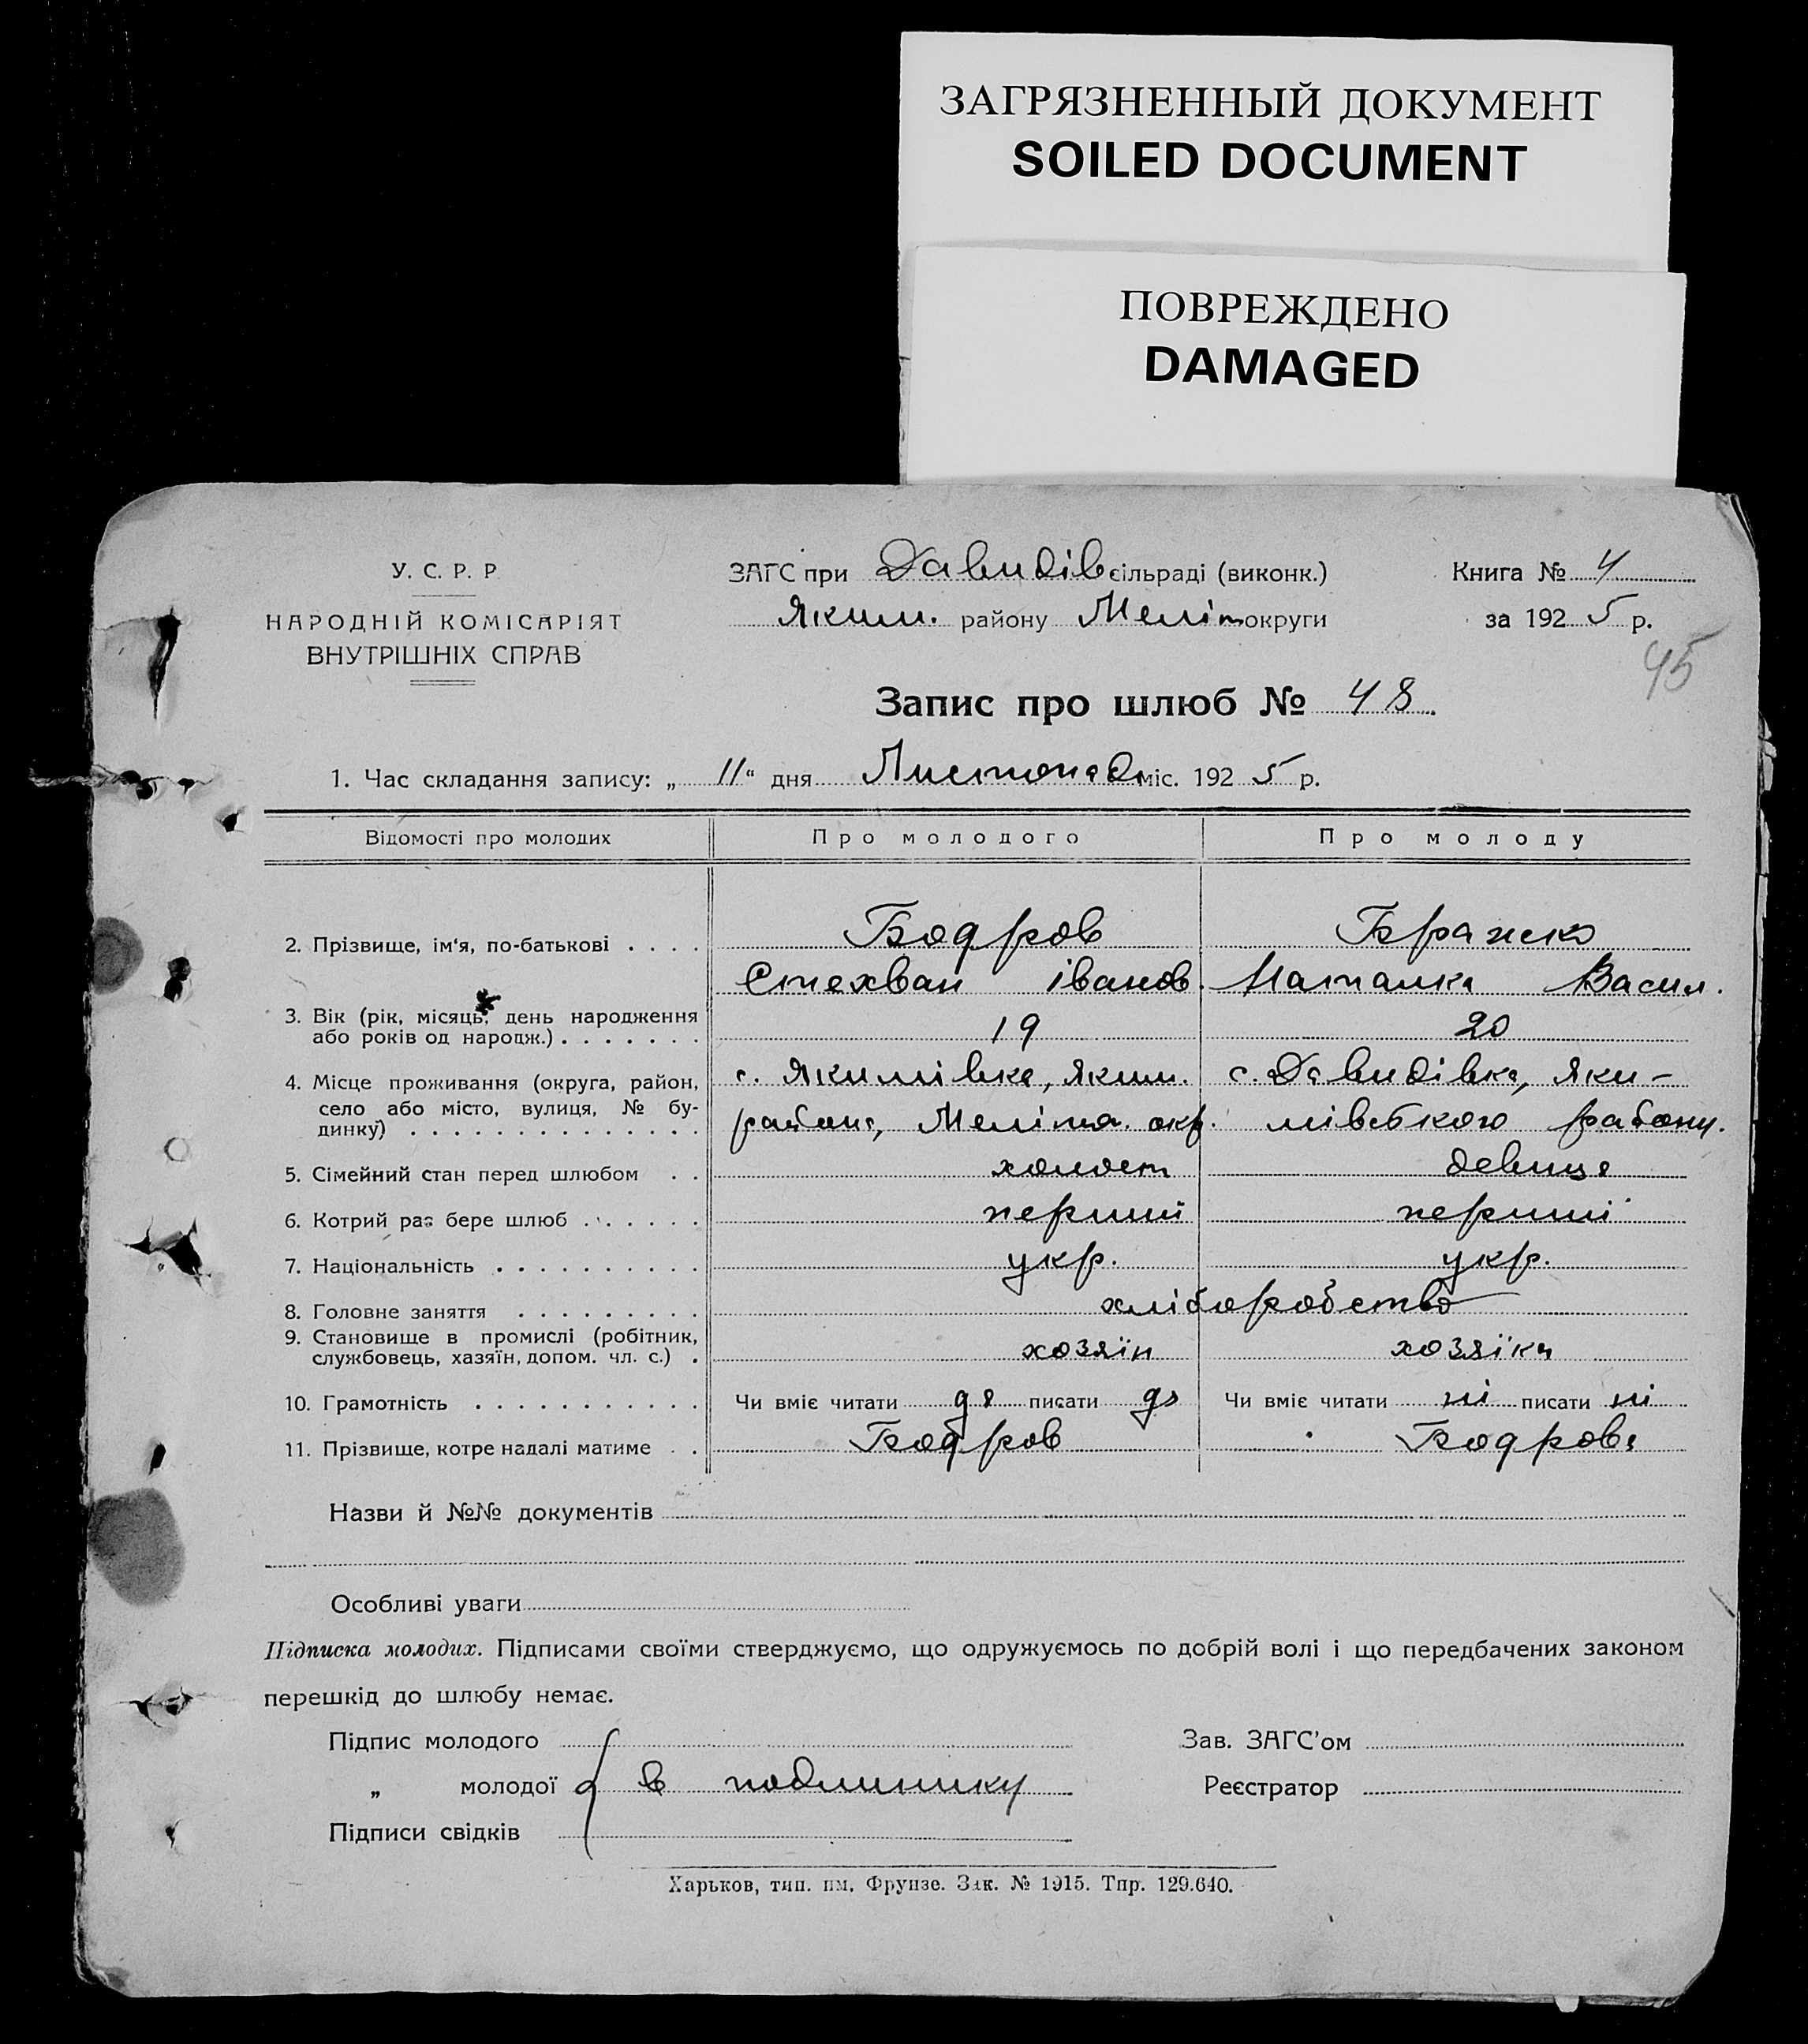 ЗАГРЯЗНЕННЫЙ ДОКУМЕНТ
SOILED DOCUMENT
ПОВРЕЖДЕНО
DAMAGED
У. С. Р. Р
НАРОДНІЙ КОМІСАРІЯТ
ВНУТРІШНІХ СПРАВ
ЗАГС при Давидів сільраді (виконк.)
Яким. району Меліт округи
Книга № 4
за 1925 р.
45
Запис про шлюб № 48.
1. Час складання запису: „ 11 “ дня Листопад міс. 1925 р.
Відомості про молодих Про молодого Про молоду
2. Прізвище, ім‘я, по-батькові . . . . Бодров Бражко
Стехван Іванов. Наталка Васил.
3. Вік (рік, місяць, день народження
або років од народж.) . . . . . . . 19 20
4. Місце проживання (округа, район, с. Якимівка, Яким. с. Давидівка, Яки-
село або місто, вулиця, № бу- району, Меліт. окр. мівського району.
динку) . . . . . . . . . . . . . . .
5. Сімейний стан перед шлюбом . . холост девица
6. Котрий раз бере шлюб . . . . . . перший перший
7. Національність . . . . . . . . . . укр. укр.
8. Головне заняття . . . . . . . . . хліборобство
9. Становище в промислі (робітник,
службовець, хазяїн, допом. чл. с.) . хозяїн хозяїка
10. Грамотність . . . . . . . . . . . Чи вміє читати да писати да Чи вміє читати ні писати ні
11. Прізвище, котре надалі матиме . . Бодров Бодрова
Назви й №№ документів
Особливі уваги
Підписка молодих. Підписами своїми стверджуємо, що одружуємось по добрій волі і що передбачених законом
перешкід до шлюбу немає.
Підпис молодого Зав. ЗАГС’ом
„ молодої в подлинику Реєстратор
Підписи свідків
Харьков, тип. им. Фрунзе. Зак. № 1915. Тир. 129.640.